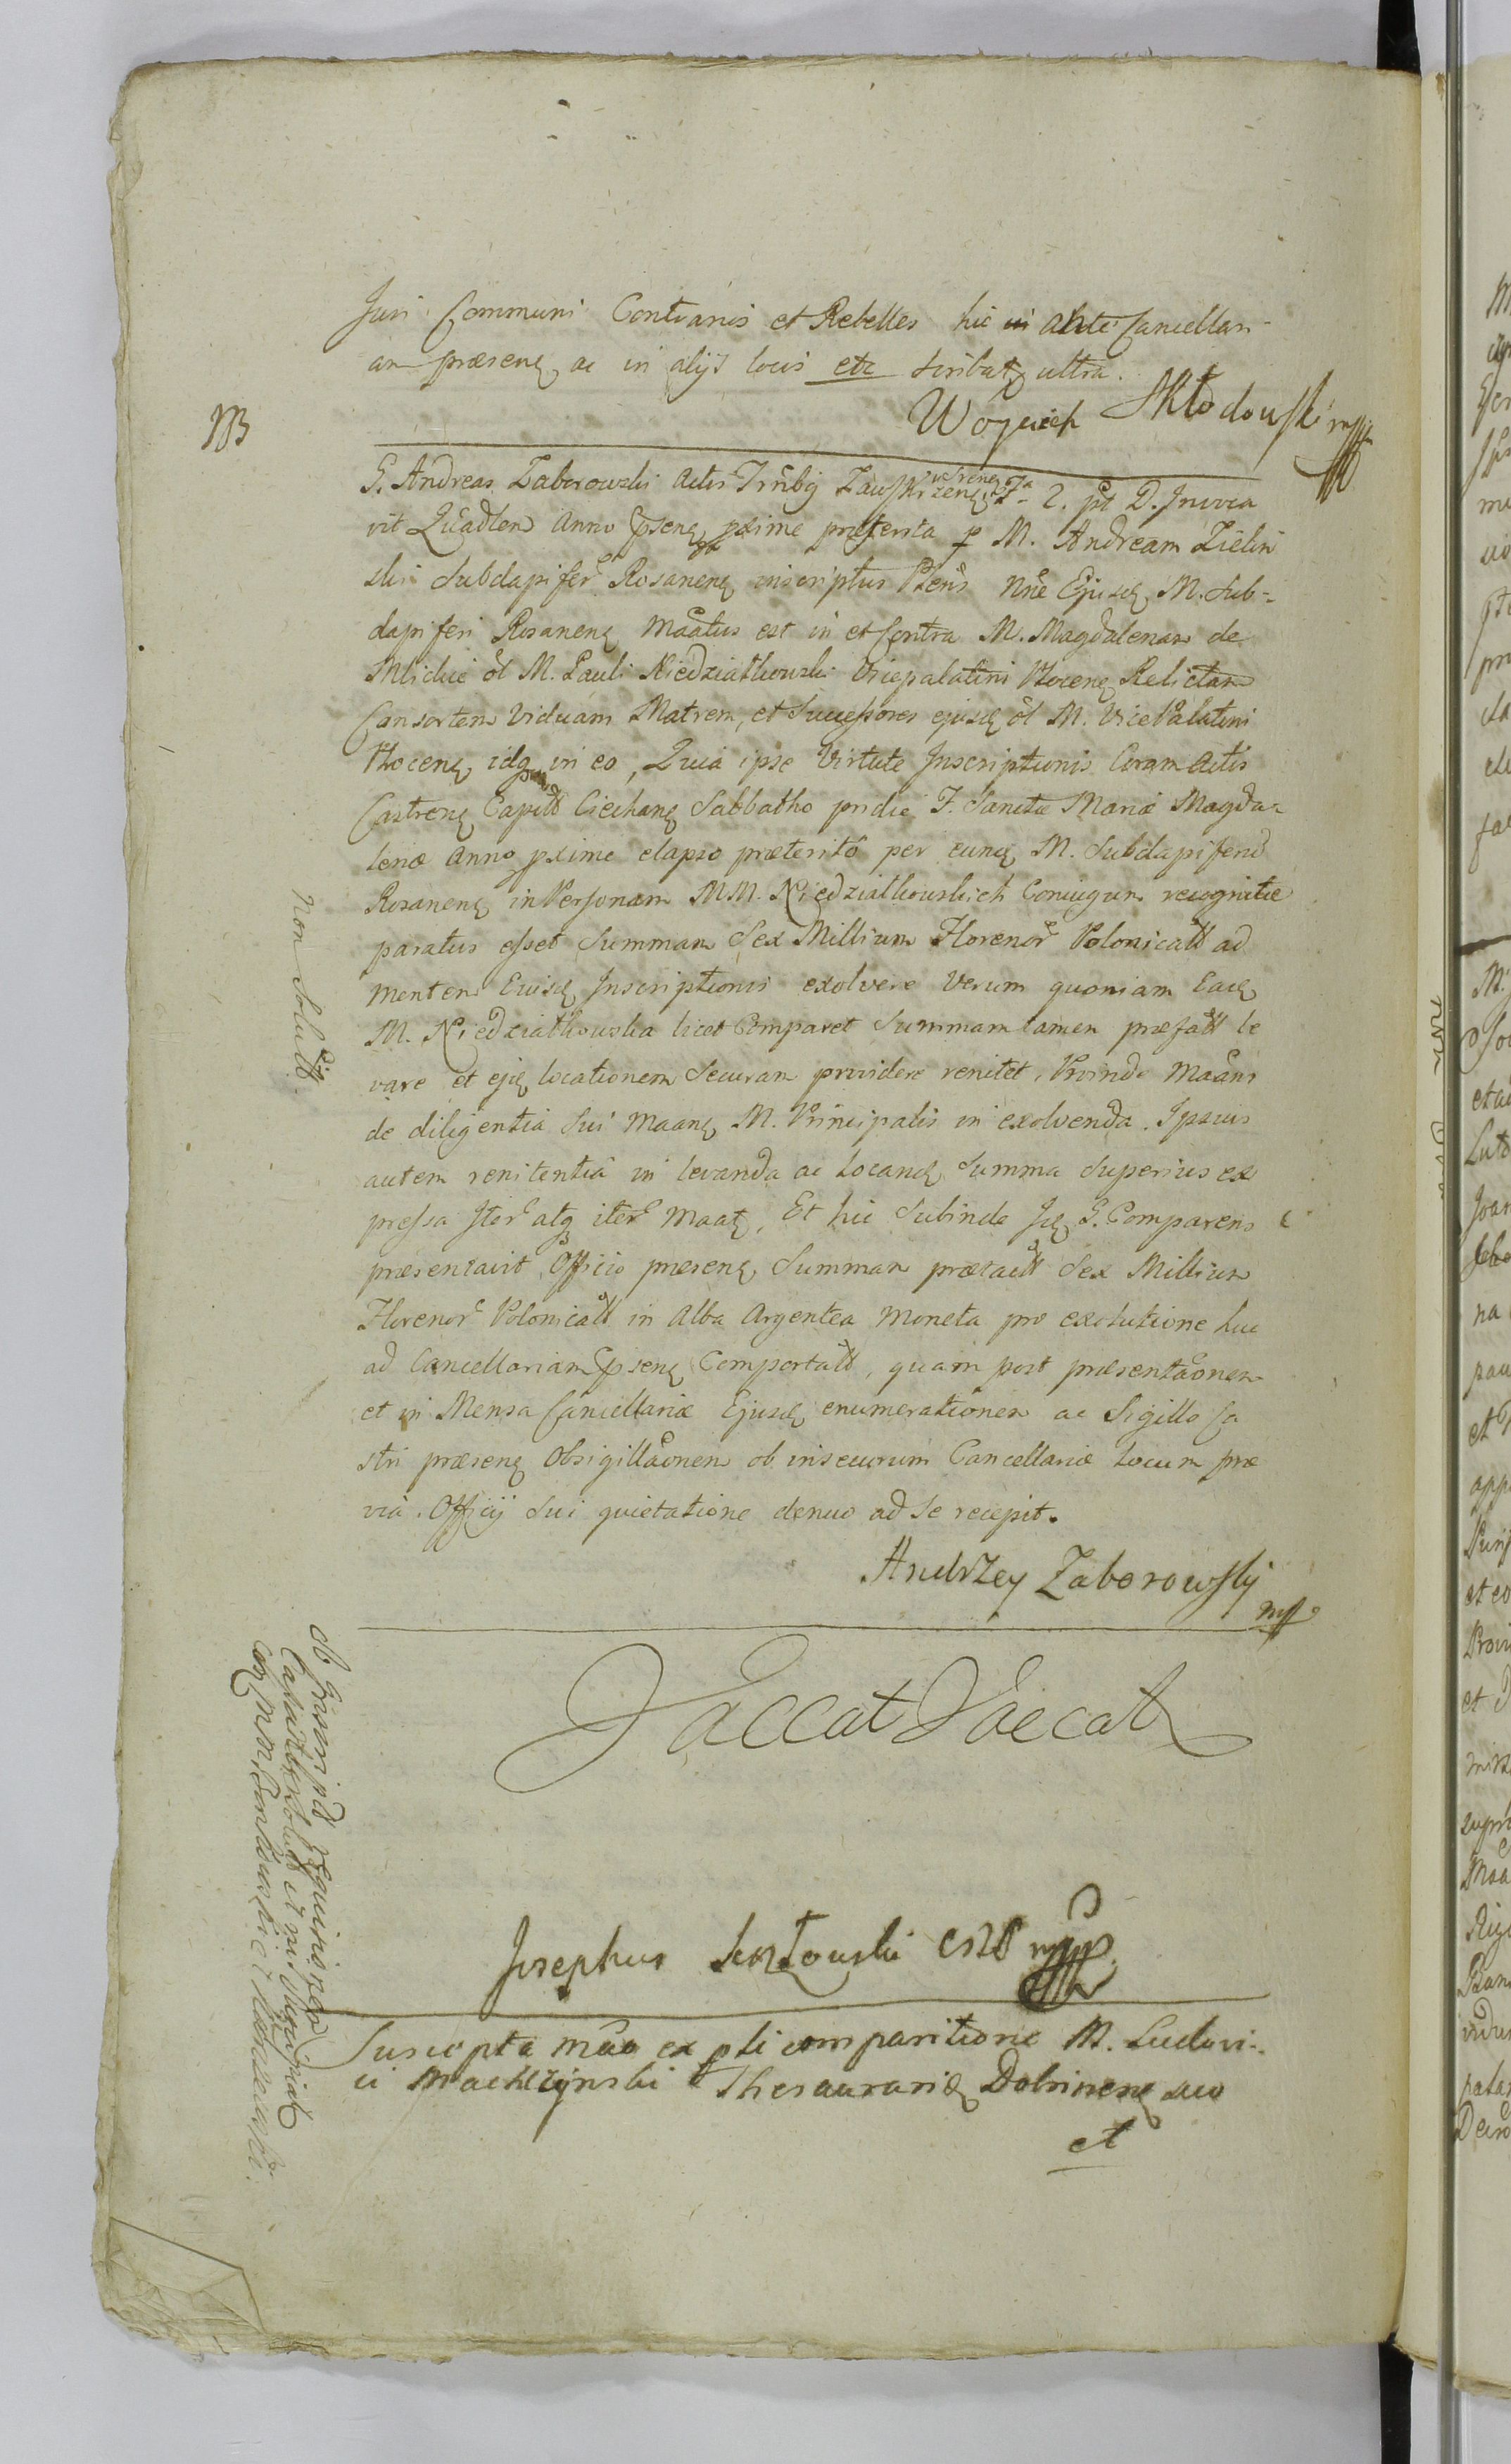 Juri Communi Contrariis et Rebelles hic in ante Cancellari-
am præsenę ac in alijs locis etc scribatę ultra.
Woyciech Skłodowski mpp
NB
G. Andreas Zaborowski Actis Trnbg Zawskrzenę F 2. pt D. Invoca
vit Quadlen Anno Ipsenę pxime præterita p M. Andream Zielin
ski Subdapifer Rosanenę inscriptus Nne Ejusdę M. Sub-
dapiferi Rosanenę Maatus est in et Contra M. Magdalenam de
ol M. Pauli Niedziałkowski Vicepalatini Plocenę Relictam
Consortem Viduam Matrem, et Successores ejusdę ol M. Vice Palatini
Plocenę idq in eo, Quia ipse Virtute Inscriptionis Coram Actis
Castrenę Capitl Ciechanę Sabbatho pridie F. Sanctæ Mariæ Magda-
lenæ Anno pxime elapso præterito per eundę M. Subdapiferum
Rosanenę in Personam MM. Niedziałkowskich Conjugum recognitæ
paratus esset Summam Sex Millium Florenor Polonicall ad
mentem Ejusdę Inscriptionis exolvere Verum quoniam Eadę
M. Niedziałkowska licet Comparet Summam tamen præfatt le
vare et ejq locationem Securam providere renitet, Proinde Maans
de diligentia Sui Maanę M. Principalis in exolvenda. Ipsius
autem renitentia in levanda ac Locandę Summa Superius ex
pressa Iter atq iter Maatę, Et hic Subinde Idę G. Comparens
præsentavit Officio præsenę Summam prætactt Sex Millium
Florenor Polonicall in Alba Argentea Moneta pro exolutione huc
ad Cancellariam Ipsenę Comportatt, quam post præsentaonem
et in Mensa Cancellariæ Ejusdę enumerationem ac Sigillo Ca
stri præsenę Obsigillaonem ob insecurum Cancellariæ Locum præ
via Officij Sui quietatione denuo ad Se recepit.
Andrzey Zaborowsky
mpp
Non Solutt
Vaccat Vaccat
ob
Josephus mpp
Suscepta mao ex pti comparitione M. Ludovi-
ci Thesaurarię Dobrinenę suo
et